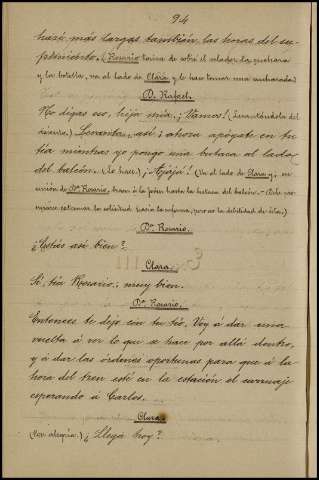 94
hacé más largas también, las horas del su-
frimiento. (Rosario toma de sobre el velador la cuchara
y la botella, va al lado de Clara y le hace tomar una cucharada)
D. Rafael.
No digas eso, hija mía. ¡Vamos! (Levantándola del
asiento.) Levanta, así; ahora apóyate en tu
tía mientras yo pongo una butaca al lado
del balcón. (Lo hace.) ¡Ajajá! (Va al lado de Clara y, en
unión de Dª Rosario, traen á la joven hasta la butaca del balcón.-
extremar la solicitud hacia la enferma, por la debilidad de ésta.)
Dª. Rosario.
¿Estás así bien?
Clara.
Sí, tía Rosario; muy bien.
Dª. Rosario.
Entonces te dejo con tu tío. Voy á dar una
vuelta á ver lo que se hace por allá dentro,
y á dar las órdenes oportunas para que á la
hora del tren esté en la estación el carruaje
esperando á Carlos.
Clara.
(Con alegría.) ¿Llega hoy?